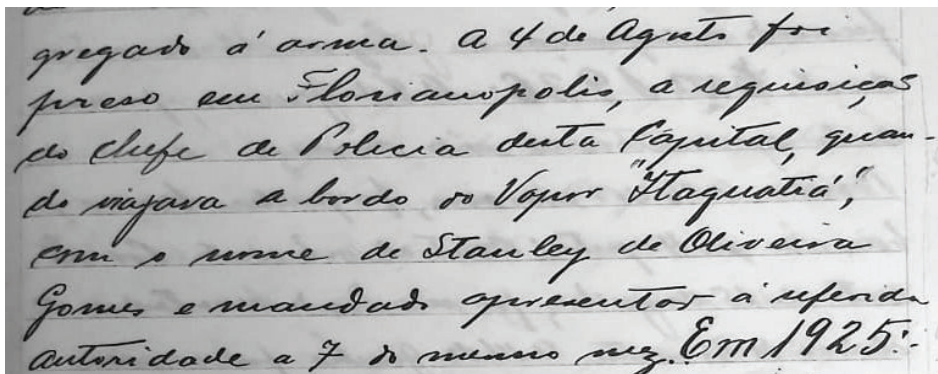 gregado á arma. A 4 de Agosto foi
preso em Florianopolis, a requisição
do chefe de Policia desta Capital, quan-
do viajava a bordo do Vapor "Itaquatiá",
com o nome de Stanley de Oliveira
Gomes e mandado apresentar á referida
autoridade a 7 do mesmo mez. Em 1925:-